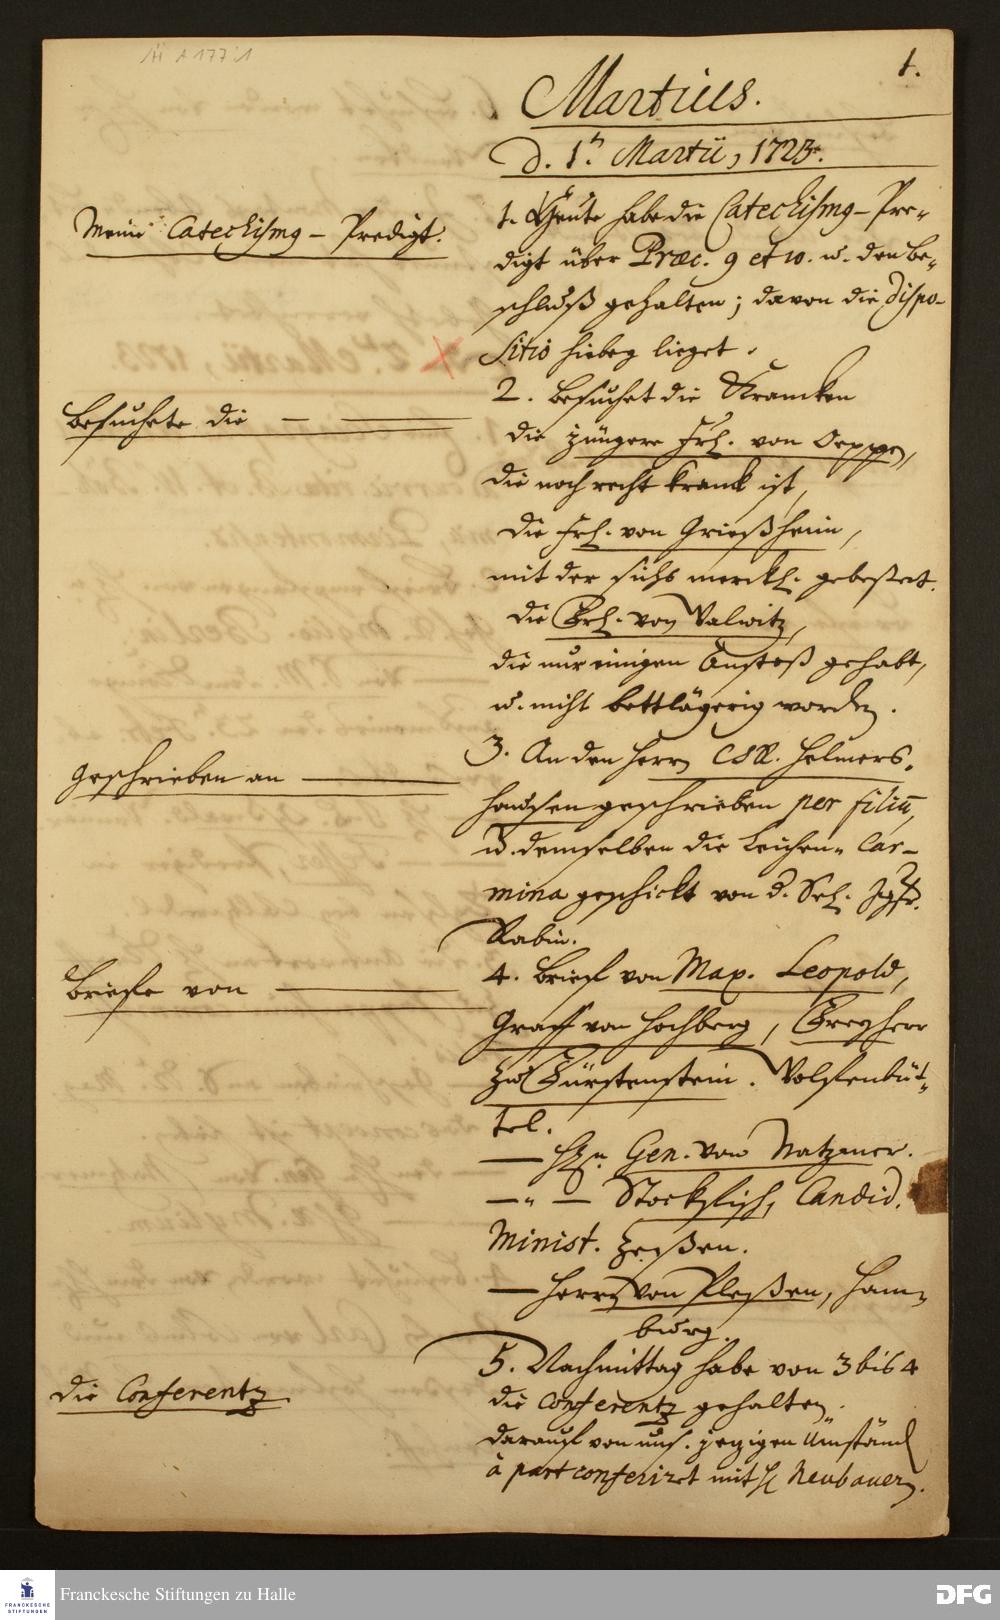 1.
Martius.
d. 1.n Martii, 1723.
Meine Catechismg- Predigt.
1. Heute habe die Catechismg- Pre-
digt über Præc. 9 et 10. u. den Be-
schluß gehalten; davon die dispo-
sitio hiebey lieget.
besuchete die
2. besuchet die Krancken
die jüngere Frl. von Oeppe,
die noch recht kranck ist,
die Frl. von Grießheim,
mit der sichs merckl. gebeßert.
die Frl. von Valwitz,
die nur einigen Anstoß gehabt,
u. nicht bettlägerig worden.
geschrieben an
3. An den Herrn CSR. Helmers-
hausen geschrieben per filiu,
u. demselben die Leichen- Car-
mina geschickt von d. Sel. Jgfr.
Rabin.
briefe von
4. Brief von Max. Leopold,
Graff von Hochberg, Freyherr
zu Fürstenstein. Wolffenbüt-
tel.
— Hn. Gen. von Natzmer.
— " — Candid.
Minist.
— Herrn von Pleßen, Ham-
burg.
die Conferentz
5. Nachmittag habe von 3 bis 4
die Conferentz gehalten.
darauf von uns. jezigen Umständ
à part conferiret mit H Neubauern.
FRANCKESCHE
STIFTUNGEN
Franckesche Stiftungen zu Halle
DFG